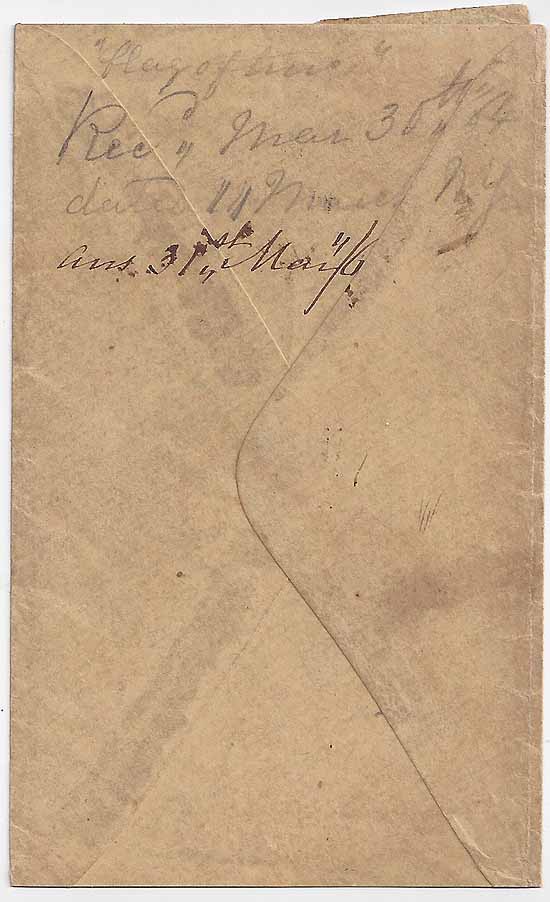 "Flag of truce"
Recd Mar 30th 64
dated 14 March N.Y
ans 31st Mar